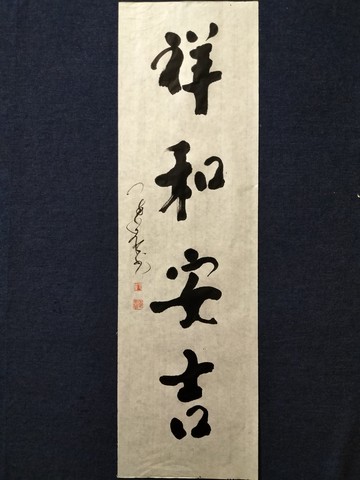 祥和安吉